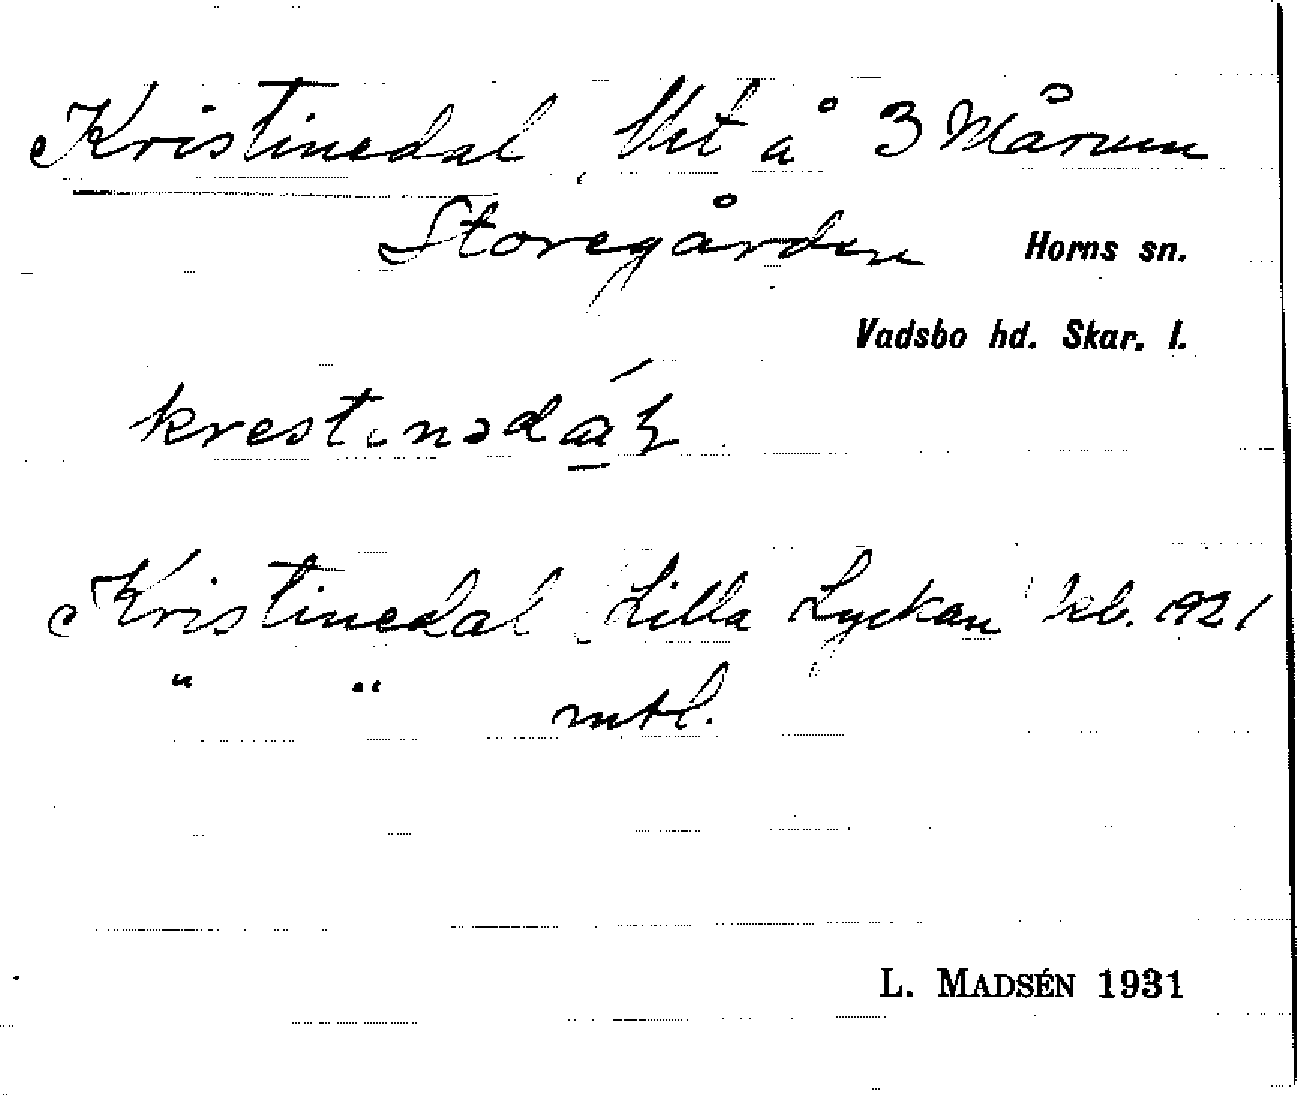 Kristinedal, lht å 3 Mårum
Storegården Horns sn.
Vadsbo hd. Skar. l.
krestɩnədáɽ
Kristinedal, Lilla Lyckan kb. 1921
" " mtl.
L. MADSÉN 1931